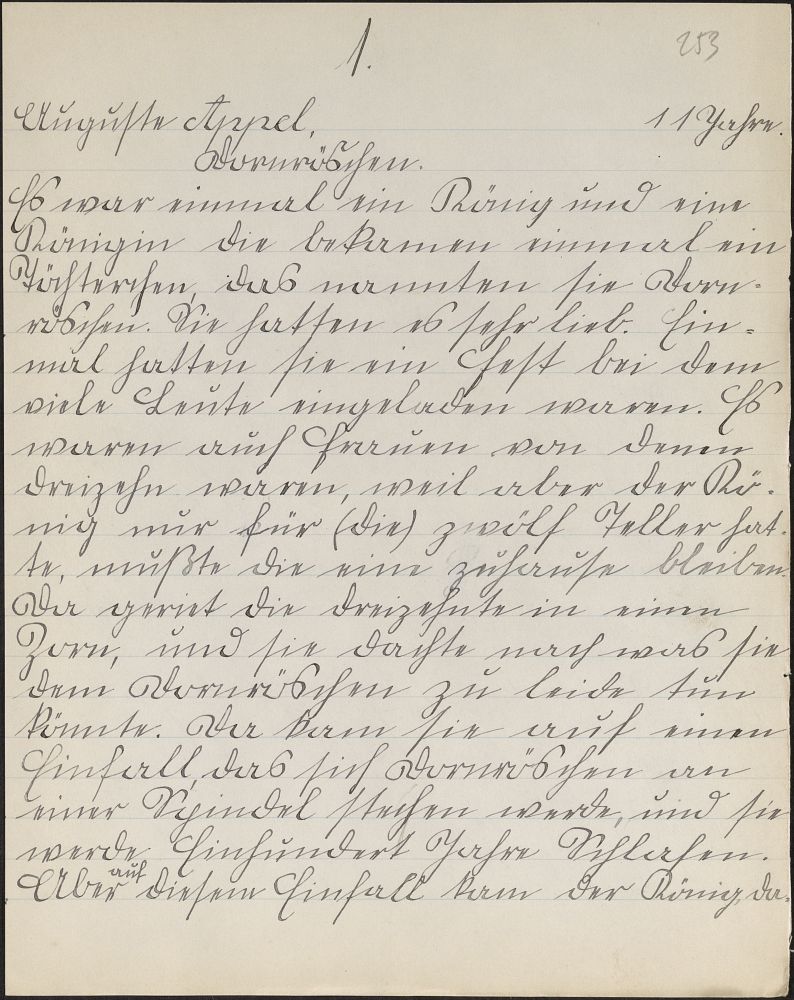 1.
253
Auguste Appel. 11 Jahre.
Dornröschen.
Es war einmal ein König und eine
Königin die bekamen einmal ein
Töchterchen, das nannten sie Dorn-
röschen. Sie hatten es sehr lieb. Ein-
mal hatten sie ein Fest bei dem
viele Leute eingeladen waren. Es
waren auch Frauen von denen
dreizehn waren, weil aber der Kö-
nig nur für (die) zwölf Teller hat-
te, mußte die eine zuhause bleiben.
Da geriet die dreizehnte in einen
Zorn, und sie dachte nach was sie
dem Dornröschen zu leide tun
könnte. Da kam sie auf einen
Einfall, das sich Dornröschen an
einer Spindel stechen werde, und sie
werde Einhundert Jahre Schlafen.
Aber auf diesem Einfall kam der König, da-